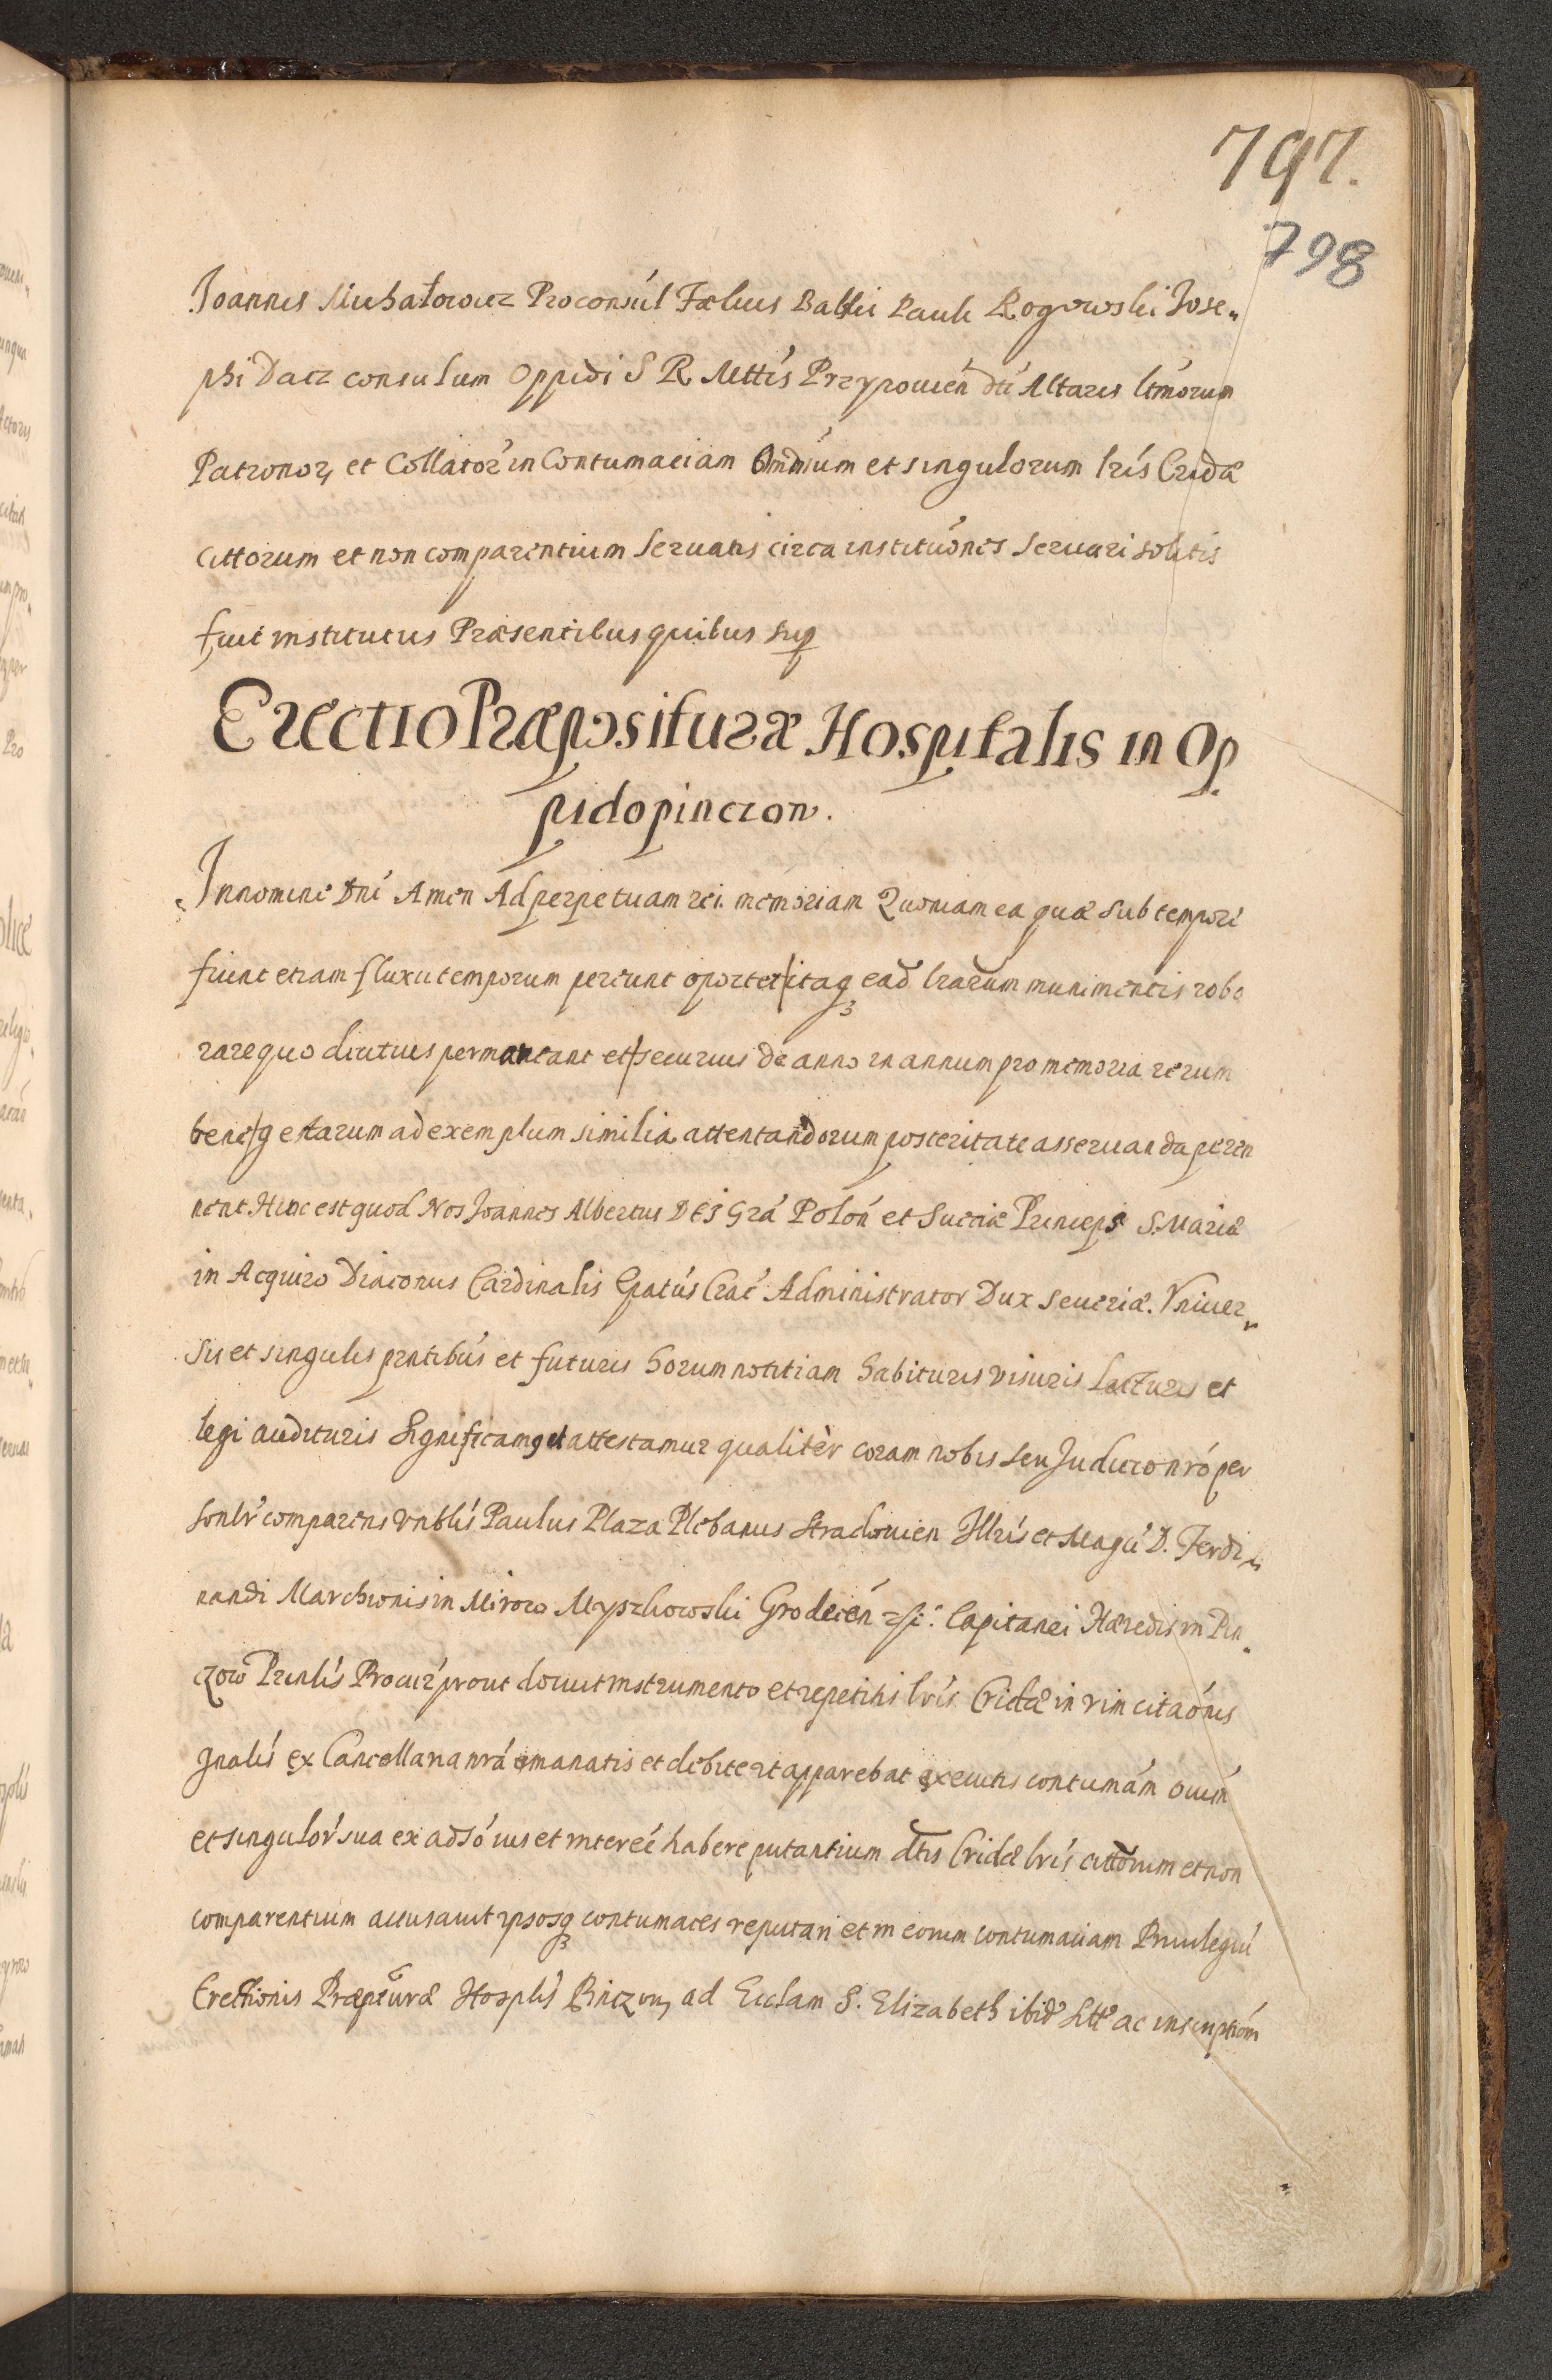 797.
798
Joannis Michałowicz Proconsúl Fælicis Baltici Pauli Rogowski Jose„
phi Dacz consulum Oppidi S R Mttis Przypouień dti Altaris ltimorum
Patronor, et Collator in Contumaciam Omnium et singulorum lris Cridæ
cittorum et non comparentium Seruatis circa institutiones Seruari solitis
fuit institutus Præsentibus quibus sup
Erectio Præpositura Hospitalis in Op
pido pinczow.
In nomine Dni Amen Ad perpetuam rei memoriam Quoniam ea quæ sub tempore
fiunt etiam fluxu temporum pereunt oportet itaq3 ead lrarum munimentis robo
rare quo diutius permaneant et securius de anno in annum pro memoria rerum
bene gestarum ad exemplum similia attentandorum posteritate asseruanda peren
nent Hinc est quod Nos Joannes Albertus DEJ Grá Polón et Sueciæ Princeps S. Mariæ
in Acquiro Diaconus Cardinalis Epatús Crac Administrator Dux Seueriæ. Vniuer„
sis et singulis pntibús et futuris horum notitiam habituris visuris Lecturis et
legi audituris Significamq et attestamur qualitèr coram nobis seu Judicio nró per
sonlr comparens Vnblis Paulus Plaza Plebanus Stradouien Jllris et Magci D. Ferdi„
nandi Marchionis in Mirow Myszkowski Grodecén Capitanei Hæredis in Pin„
czow Prinlis Procur prout docuit instrumento et repetitis lris Cridæ in vim citaónis
Gnalis ex Cancellaria nrá emanatis et debite ut apparebat executis contumám ouim
et singulor sua ex adsó ius et intereé habere putantium dtis Cridæ lris cittorum et non
comparentium accusauit ipsosq3 contumaces reputari et in eorum contumaciam Priuilegii
Erectionis Præptúræ Hosplis Pinczou, ad Ecclam S. Elizabeth ibid stte ac inscriptióm